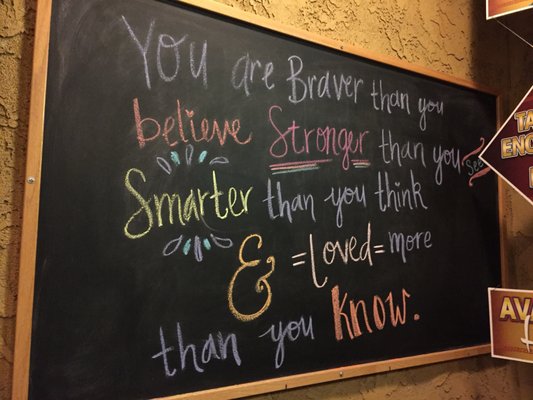 You are Braver than you
believe Stronger than you
See
Smarter than you think
& =loved= more
than you know.
TA
ENC
AVA